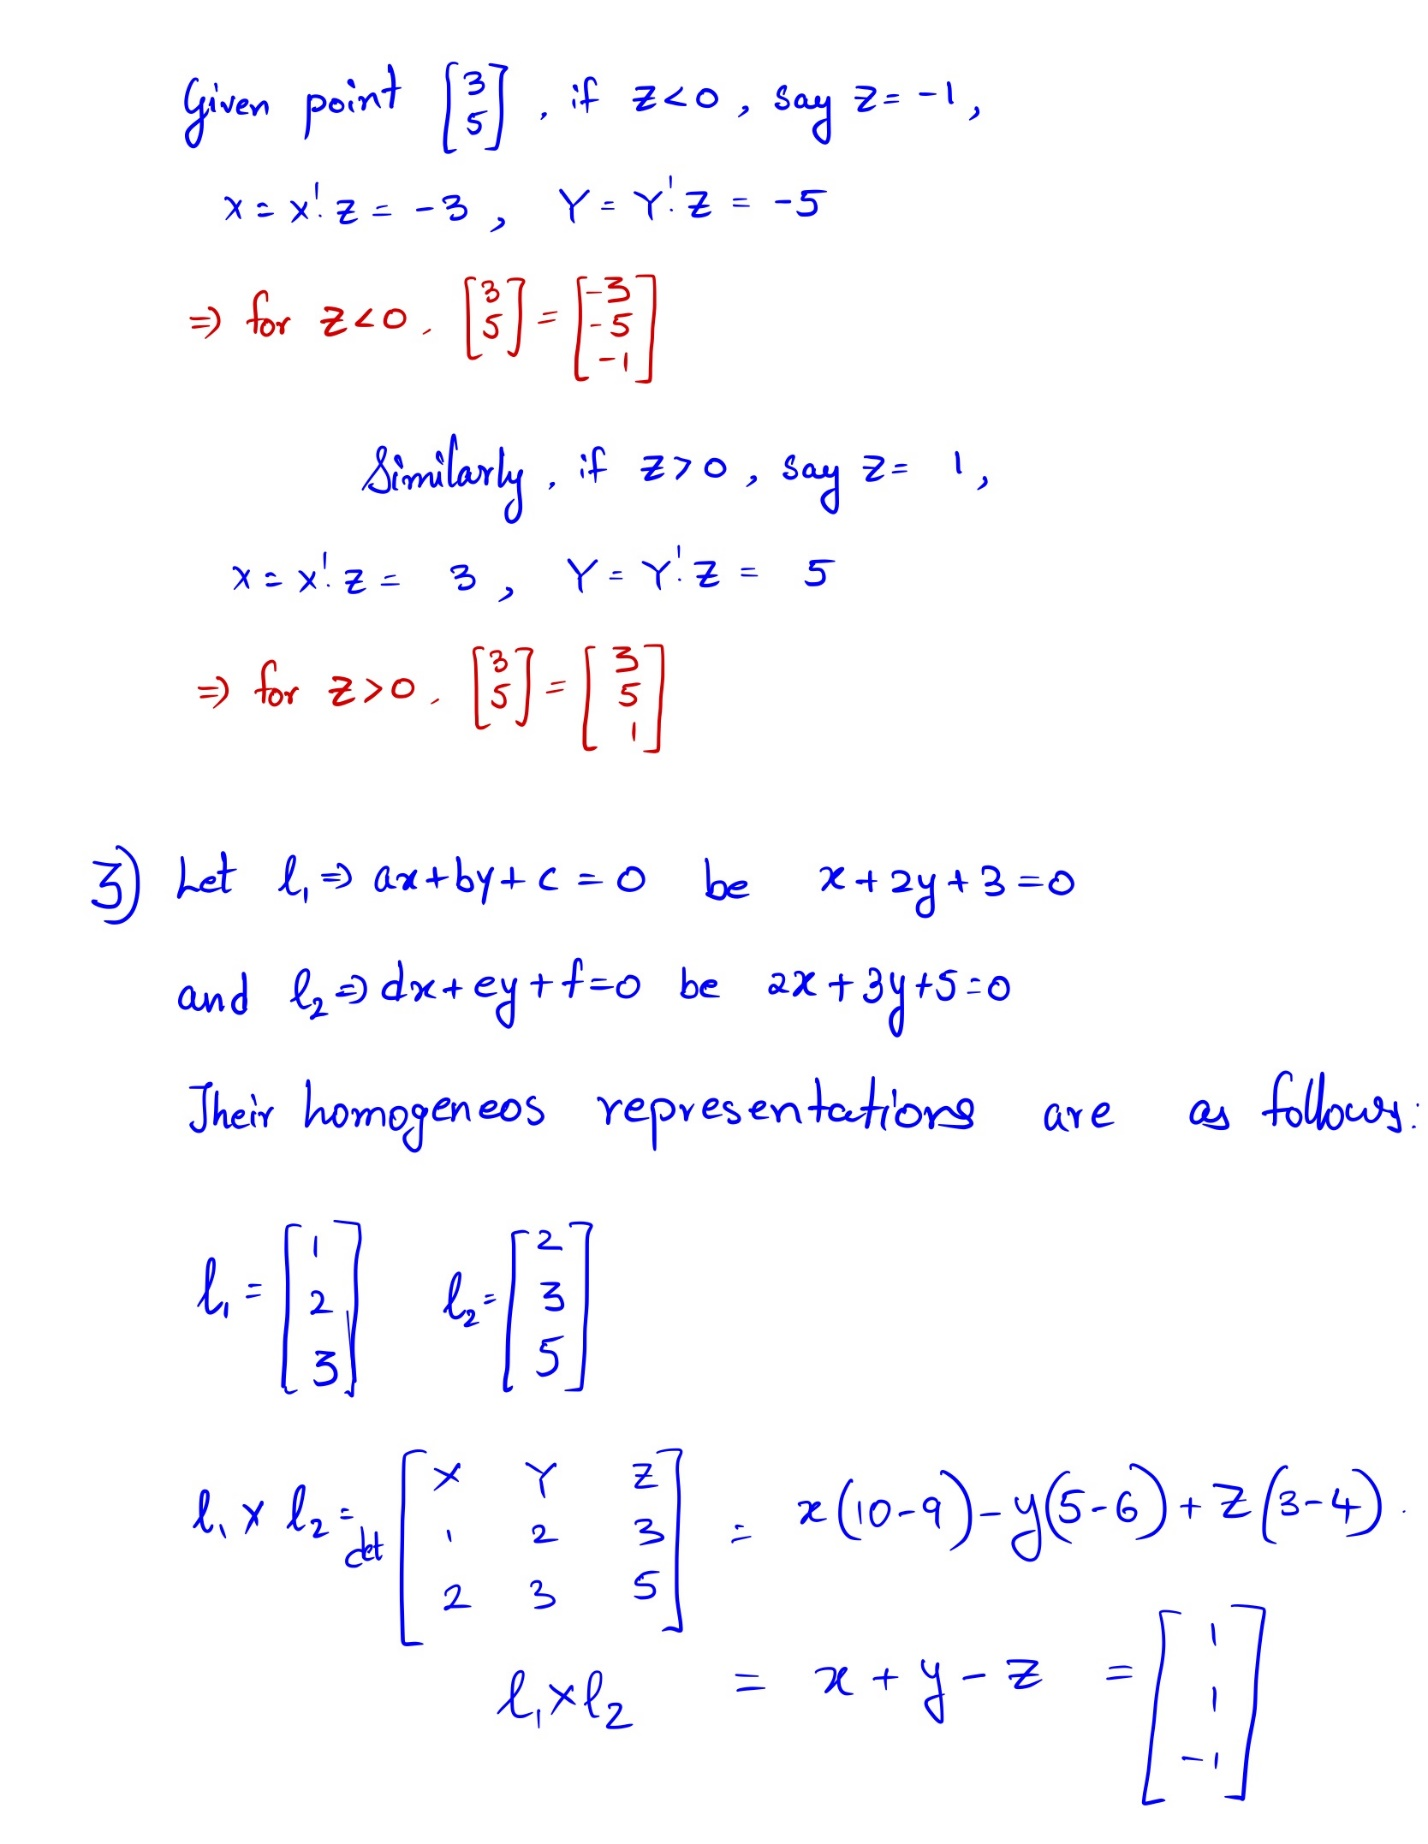 Given point [3 5], if z<0, say z=-1,
x = x'.z = -3, Y = Y'.Z = -5
⇒ for z<0, [3 5] = [-3 -5 -1]
Similarly, if z>0, say z= 1,
x = x'.z = 3, Y = Y'.Z = 5
⇒ for z>0, [3 5] = [3 5 1]
3) Let l₁ ⇒ ax+by+c=0 be x+2y+3=0
and l₂ ⇒ dx+ey+f=0 be 2x+3y+5=0
Their homogeneos representations are as follows:
l₁ = [1 2 3] l₂ = [2 3 5]
l₁ x l₂ = det [X Y Z; 1 2 3; 2 3 5] = x(10-9)-y(5-6)+z(3-4).
l₁xl₂ = x+y-z = [1 1 -1]